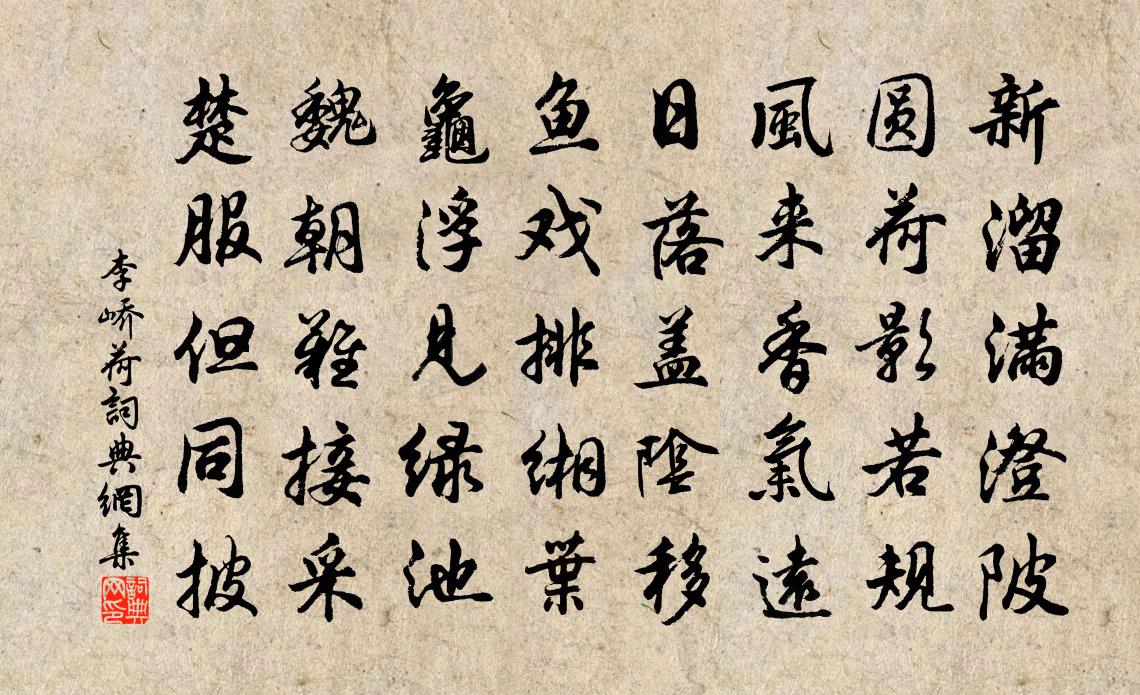 新溜满澄陂
圆荷影若规
風来香氣遠
日落盖陰移
鱼戏排缃葉
龜浮见绿池
魏朝難接采
楚服但同披
李峤荷詞典網集
詞典网印